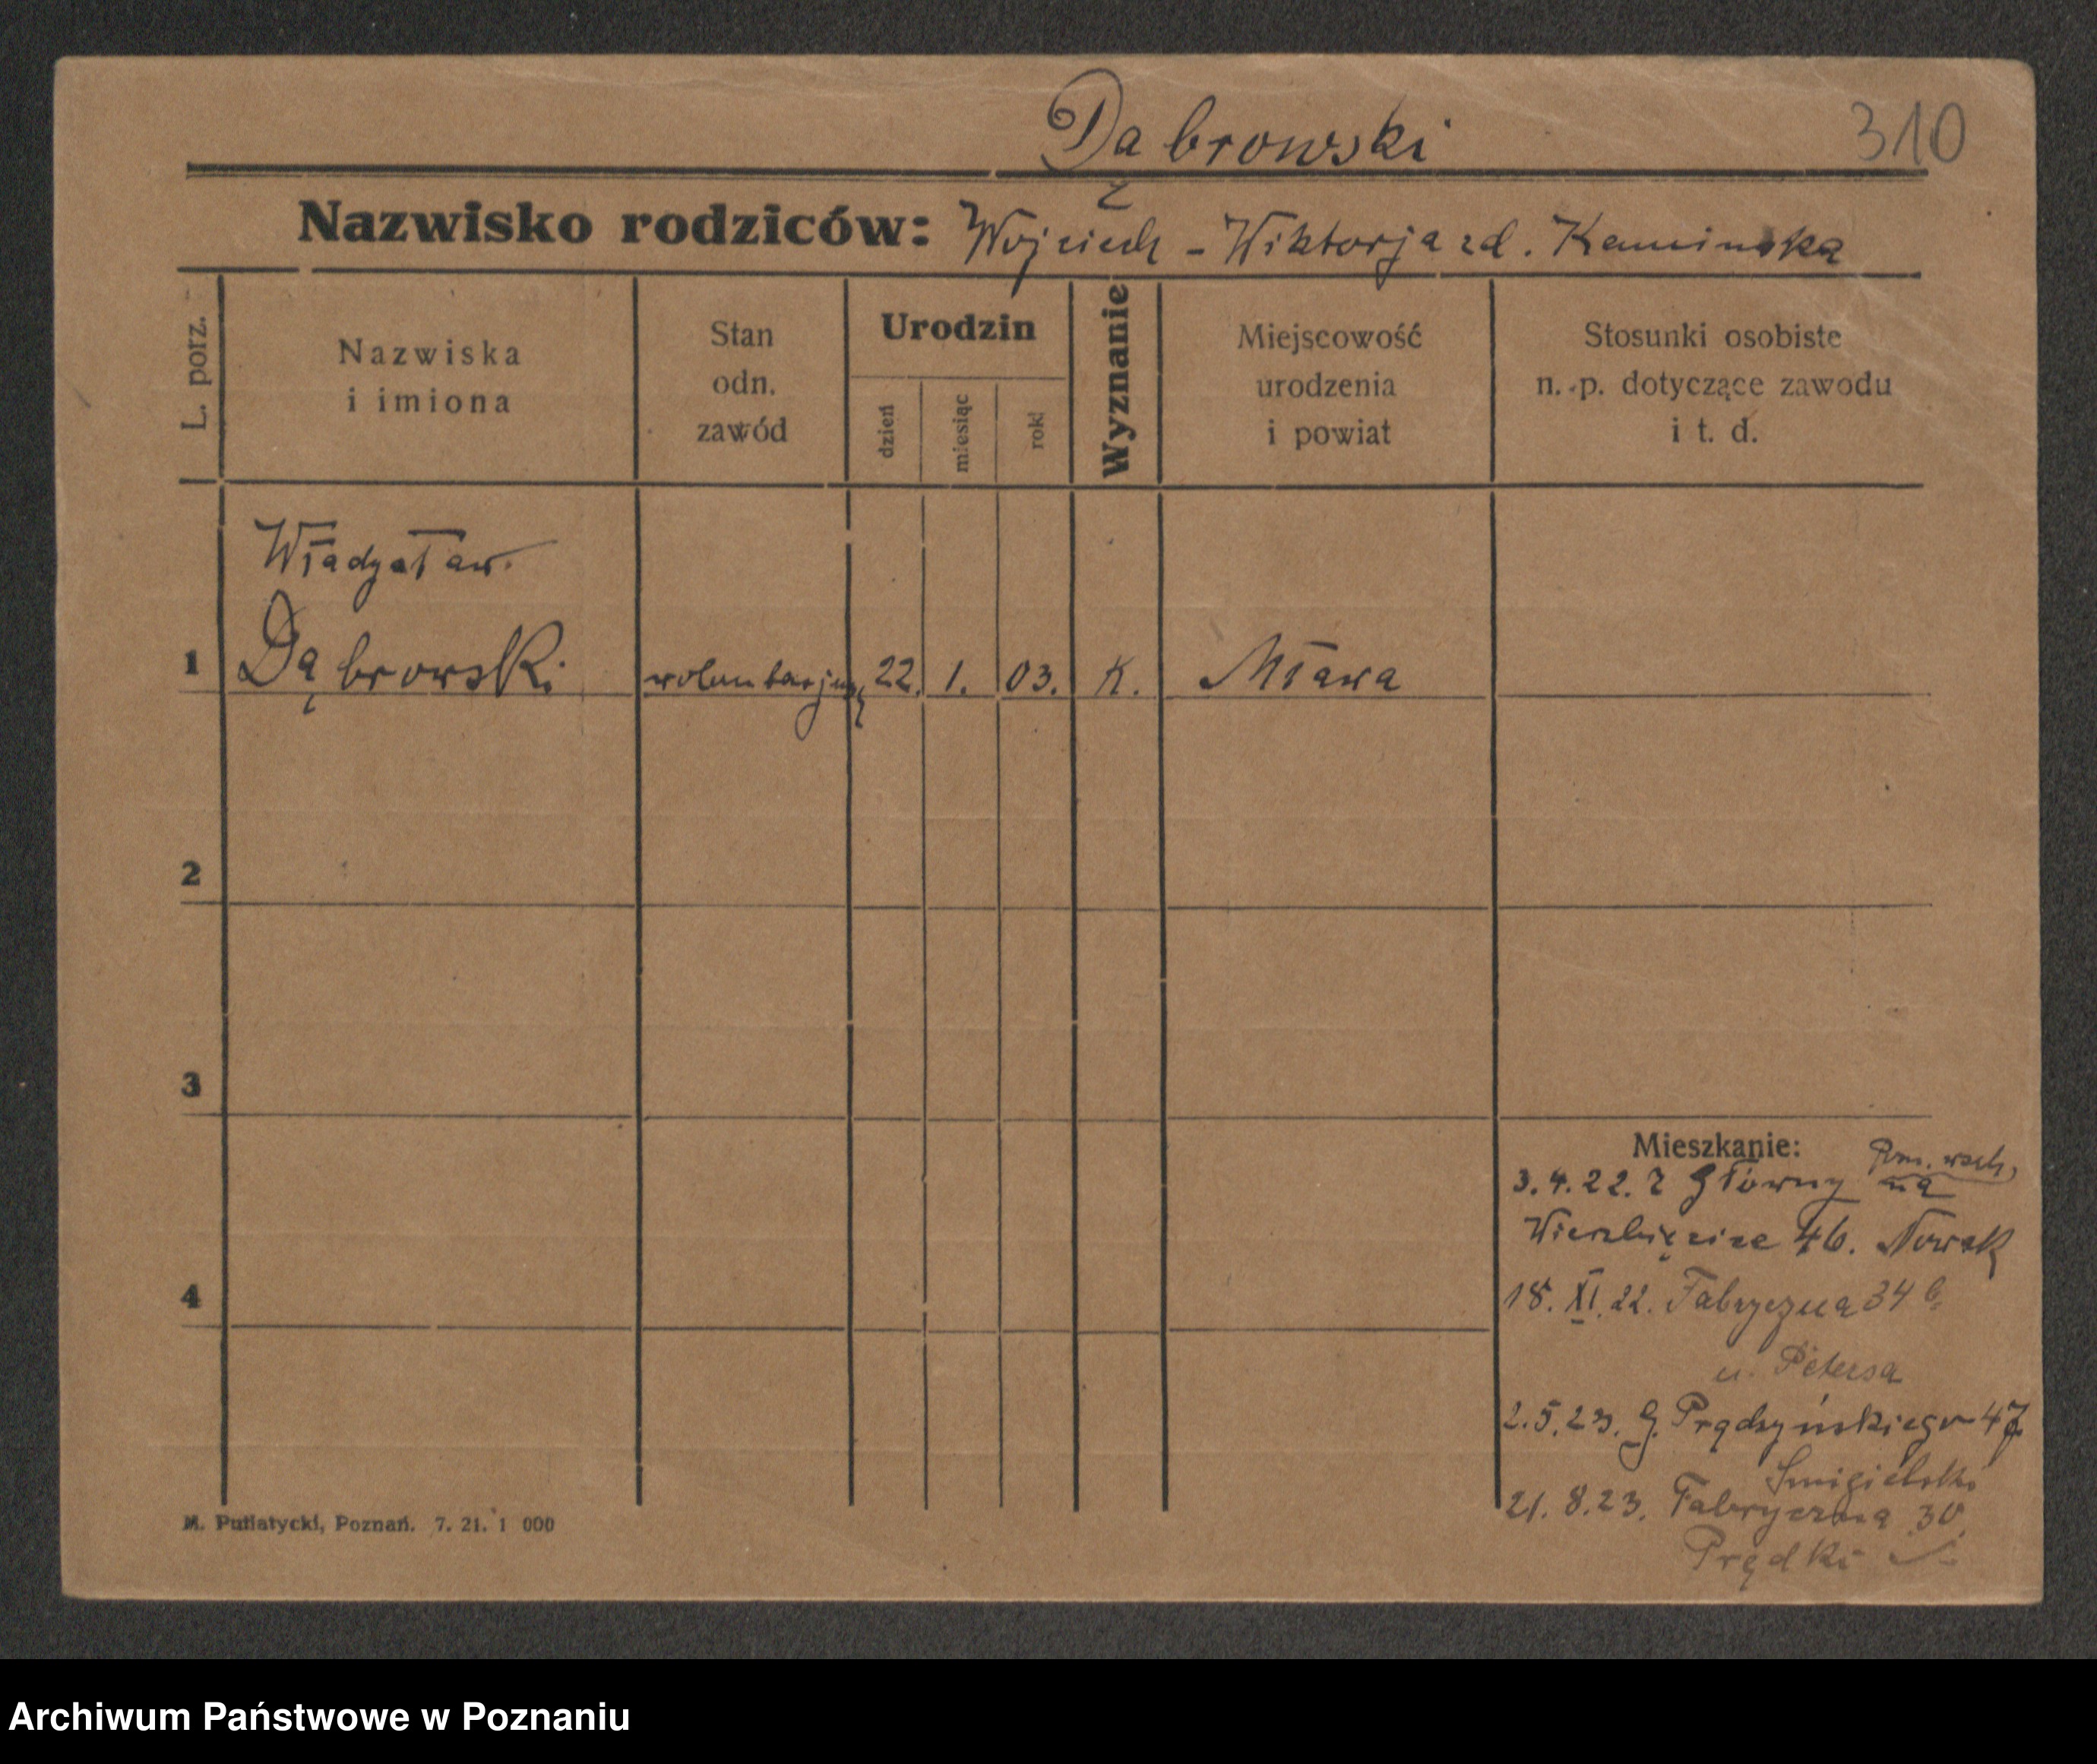 Dąbrowski
310
Nazwisko rodziców: Wojciech - Wiktorja zd. Kaminska
L. porz.
Nazwiska
i imiona
Stan
odn.
zawód
Urodzin
dzień
miesiąc
rok
Wyznanie
Miejscowość
urodzenia
i powiat
Stosunki osobiste
n. p. dotyczące zawodu
i t. d.
Władysław
1 Dąbrowski 22. 1. 03. K. Mława
2
3
4
Mieszkanie:
3.4.22. z Główny na
Wierzbięcice 46. Nowak
18. XI. 22. Fabryczna 34
u. Petersa
2.5.23. G. Prądzyńskiego 47
Smigielski
21. 8. 23. Fabryczna 30.
Prądki
M. Putiatycki, Poznań. 7. 21. 1 000
Archiwum Państwowe w Poznaniu